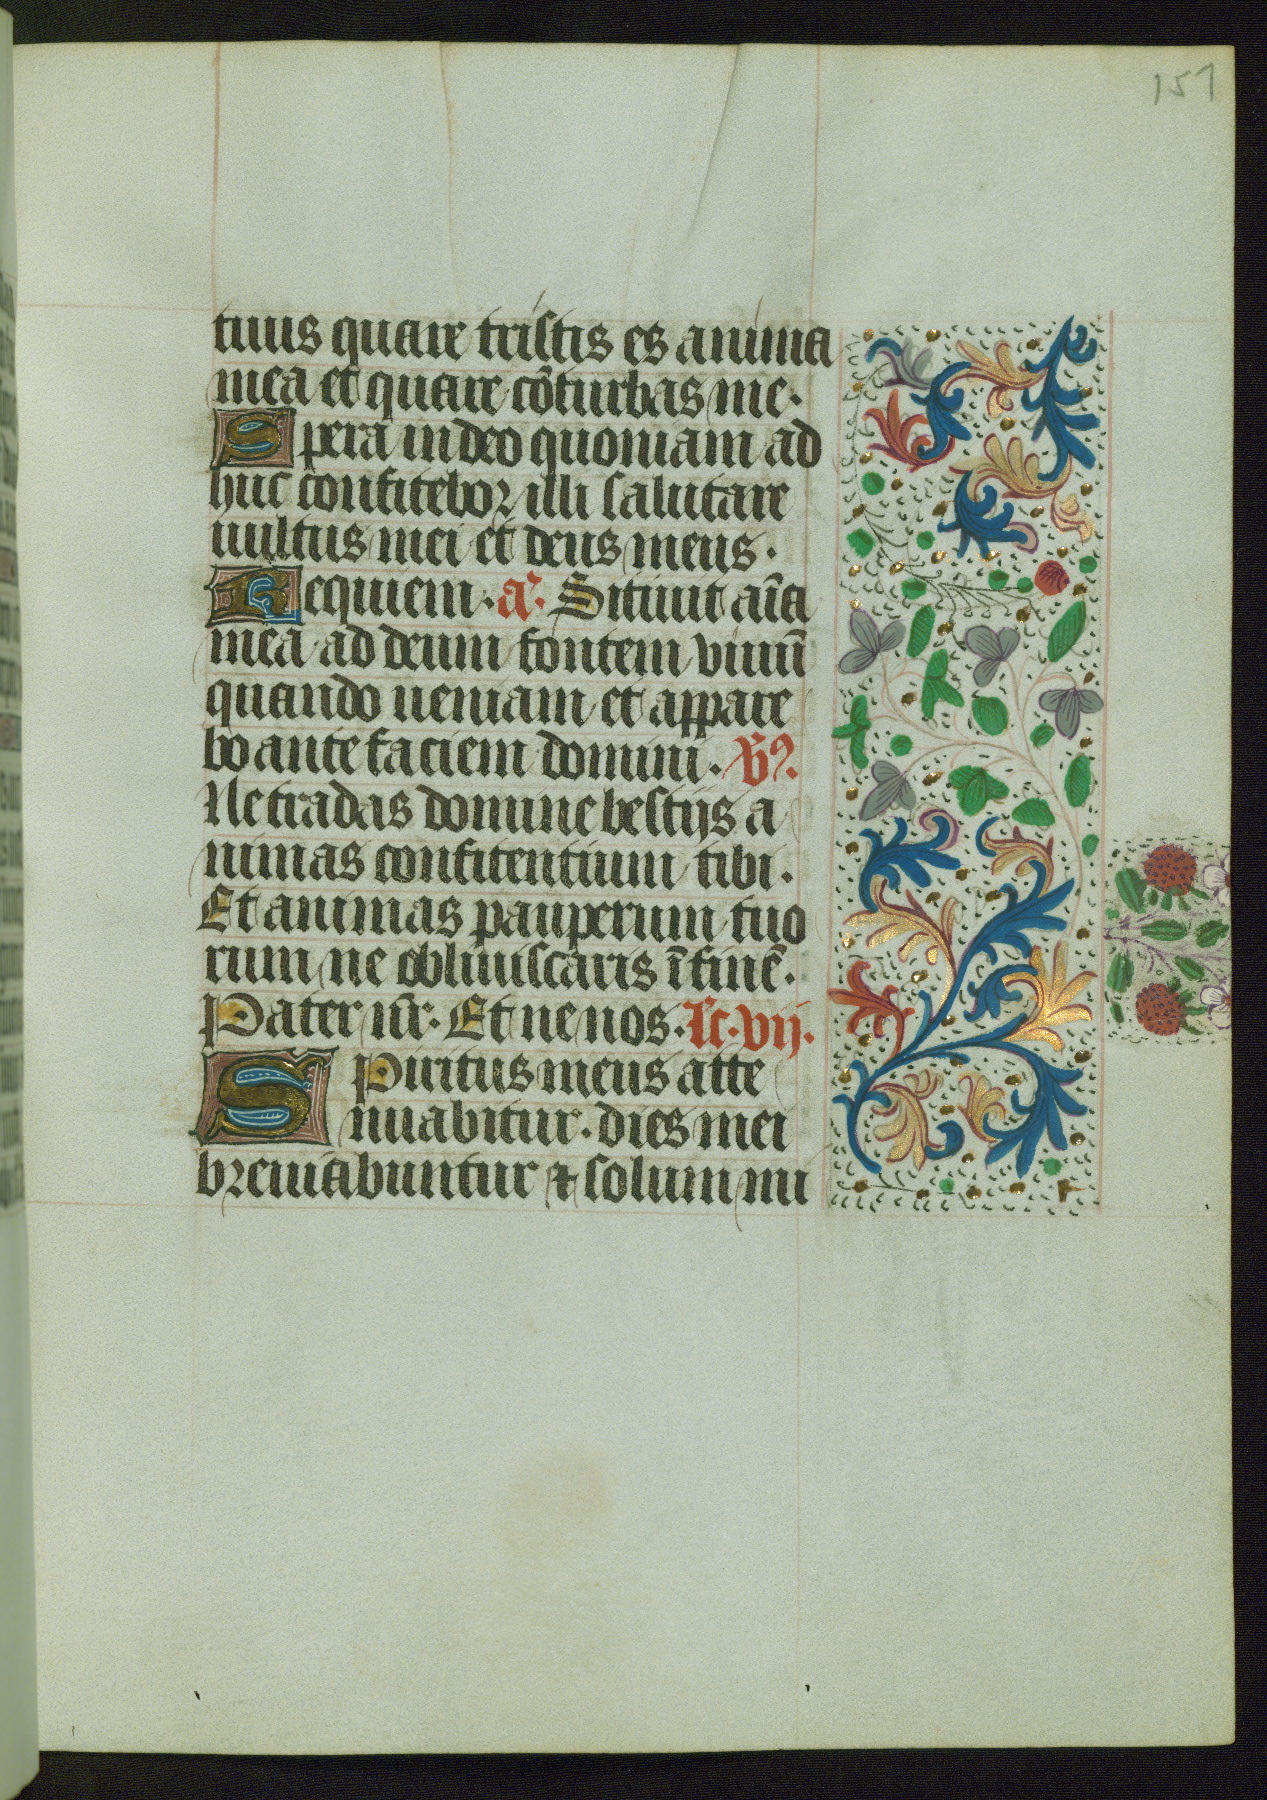 151
tuus quare tristis es anima
mea et quare cōturbas me.
Spera in deo quoniam ad
huc confitebor illi salutare
uultus mei et deus meus.
Requiem. a. Sitiuit aīa
mea ad deum fontem viuū
quando ueniam et appare
bo ante faciem domini. v̄s.
Ne tradas domine bestijs a
nimas confitentium tibi.
Et animas pauperum tuo
rum ne obliuiscaris ī finē.
Pater nr̄. Et ne nos. Lc. vij.
Spiritus meus atte
nuabitur. dies mei
breuiabuntur & solum mi